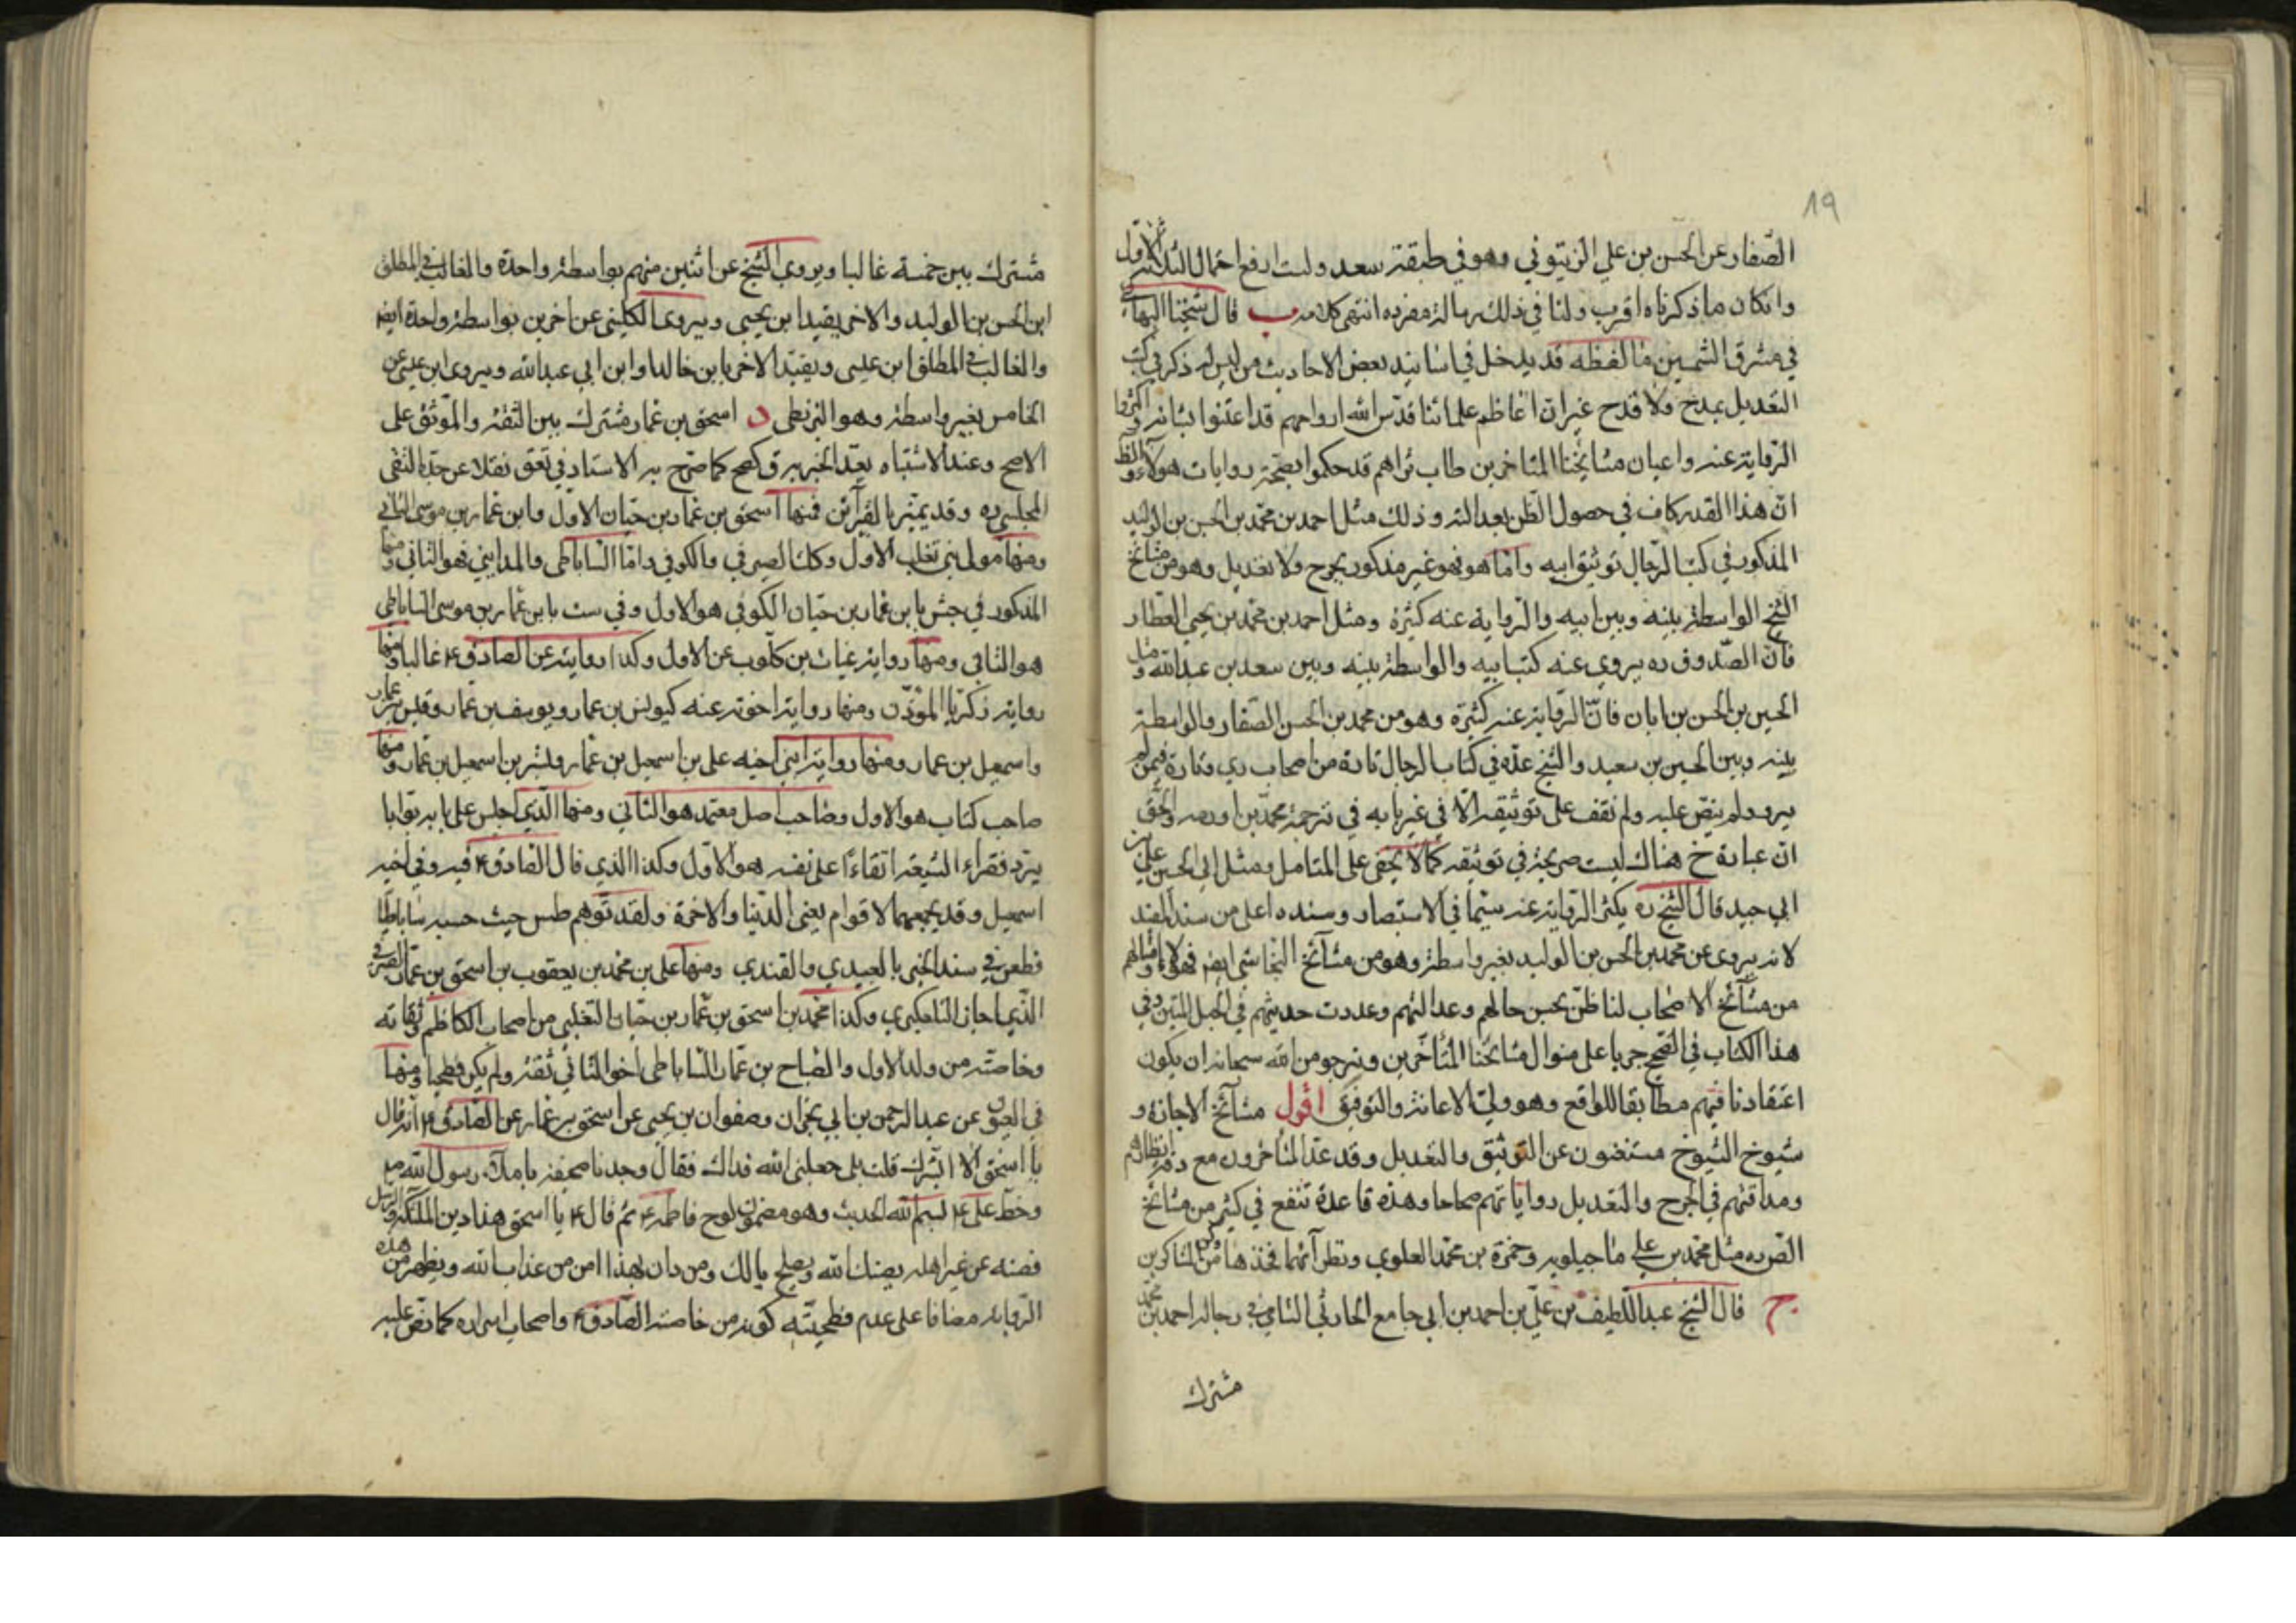 19
الصّفار عن الحسن بن علي الزيتوني وهو في طبقة سعد ولست ارفع احتمال الثلاثة الاول
وانكان ما ذكرناه اقرب ولنا في ذلك رسالة مفرده انتهى كلامه ب قال شيخنا البهائي
في مشرق الشمسين ما لفظه قد يدخل في اسانيد بعض الاحاديث من ليس له ذكر في كتب
التعديل بمدح ولا قدح غير ان اعاظم علمائنا قدّس الله ارواحهم قد اعتنوا بشانه واكثروا
الرواية عنه واعيان مشايخنا المتاخرين طاب ثراهم قد حكموا بصحة روايات هو مثله والظ
انّ هذا القدر كاف في حصول الظن بعدالته وذلك مثل احمد بن محمّد بن الحسن بن الوليد
المذكور في كتب الرجال توثيق ابيه وامّا هو فهو غير مذكور بجرح ولا تعديل وهو من مشايخ
الشيخ الواسطة بينه وبين ابيه والرواية عنه كثيرة ومثل احمد بن محمّد بن يحيى العطار
فانّ الصّدوق ره يروي عنه كتب ابيه والواسطة بينه وبين سعد بن عبد الله ومثل
الحسين بن الحسن بن ابان فانّ الرواية عنه كثيرة وهو من محمد بن الحسن الصّفار والواسطة
بينه وبين الحسين بن سعيد والشيخ عدّه في كتاب الرجال تارة من اصحاب ري وتارة فيمن لم
يرو ولم ينص عليه ولم نقف على توثيقه الّا في غير بابه في ترجمة محمّد بن اورمه والحق
ان عبارة خ هناك ليست صريحة في توثيقه كما لا يخفى على المتامل ومثل ابي الحسين علي بن
ابي جيد فان الشيخ ره يكثر الرواية عنه سيّما في الاستبصار وسنده اعلى من سند المفيد
لانه يروي عن محمد بن الحسن بن الوليد بغير واسطة وهو من مشايخ النجاشي ايضا فهؤلاء وامثالهم
من مشآئخ الاصحاب لنا ظنّ بحسن حالهم وعدالتهم وعددت حديثهم في الحبل المتين وفي
هذا الكتاب في الصحيح جريا على منوال مشايخنا المتأخّرين ونرجو من الله سبحانه ان يكون
اعتقادنا فيهم مطابقا للواقع وهو وليّ الاعانة والتوفيق اقول مشآئخ الاجازة و
شيوخ الشيوخ مستغنون عن التوثيق والتعديل وقد عدّ المتأخرون مع دقة انظارهم
ومداقتهم في الجرح والتعديل رواياتهم صحاحا وهذه قاعدة تنفع في كثير من مشائخ
الصّ ره مثل محمّد بن علي ماجيلويه وحمزة بن محمّد العلوي ونظرآئهما فخذها وكن من الشاكرين
ج قال الشيخ عبد اللّطيف بن عليّ بن احمد بن ابي جامع الحارثي الشامي في رجاله احمد بن محمّد
مشترك
مشترك بين خمسة غالبا ويروي الشيخ عن اثنين منهم بواسطة واحدة والغالب في المطلق
ابن الحسن بن الوليد والاخر يقيد ابن يحيى ويروي الكليني عن اخرين بواسطة واحدة ايضا
والغالب في المطلق ابن عيسى ويقيّد الاخر بابن خالد او ابن ابي عبد الله ويروي ابن عيسى عن
الخامس بغير واسطة وهو البزنطي د اسحق بن عمار مشترك بين الثقة والموثّق على
الاصح وعند الاشتباه يعدّ الخبر برق كصح كما صرّح به الاستاد في تعق نقلا عن جدّه التقى
المجلسي ره وقد يميّز بالقرآئن فمنها اسحق بن عمار بن حيّان الاول وابن عمار بن موسى الثاني
ومنها مولى بني تغلب الاول وكك الصيرفي والكوفي وامّا السّاباطى والمدايني فهو الثاني ومنها
المذكور في جش بابن عمار بن حيّان الكوفي هو الاول وفي ست بابن عمار بن موسى الساباطي
هو الثاني ومنها رواية غياث بن كلّوب عن الاول وكذا روايته عن الصادق ع غالبا ومنها
رواية زكريّا المؤدّن ومنها رواية اخوته عنه كيونس بن عمار ويوسف بن عمار وقيس بن عمار
واسمعيل بن عمار ومنها رواية ابني اخيه علي بن اسمعيل بن عمّار وبشر بن اسمعيل بن عمّار ومنها
صاحب كتاب هو الاول وصاحب اصل معتمد هو الثاني ومنها الّذي اجلس على بابه بوّابا
يرّد فقراء الشيعة اتقاءً على نفسه هو الاوّل وكذا الذي قال الصّادق ع فيه وفي اخيه
اسمعيل وقد يجمعهما لاقوام يعني الدّنيا والاخرة ولقد توهم طس حيث حسبه ساباطيّا
فطعن في سند الخبر بالعبيدي والقندي ومنها علي بن محمّد بن يعقوب بن اسحق بن عمّار الصيرفي
الّذي اجاز التلعكبري وكذا محمّد بن اسحق بن عمّار بن حيّان التغلبي من اصحاب الكاظم ع وثقاته
وخاصّته من ولد الاول والصّباح بن عمّار السّاباطى اخو الثاني ثقة ولم يكن فطحيا ومنها
في العيون عن عبد الرحمن بن ابي نجران وصفوان بن يحيى عن اسحق بن عمار عن الصّادق ع انه قال
يا اسحق الا ابشّرك قلت بلى جعلني الله فداك فقال وجدنا صحيفة باملاء رسول الله ص
وخطّ علي ع بسم الله الحديث وهو مضمون لوح فاطمة ع ثم قال ع يا اسحق هذا دين الملئكة والرسل
فصنه عن غير اهله يصنك الله ويصلح بالك ومن دان بهذا امن من عذاب الله ويظهر من هذه
الرّواية مضافا على عدم فطحيّته كونه من خاصّة الصّادق ع واصحاب اسراره كما نصّ عليه